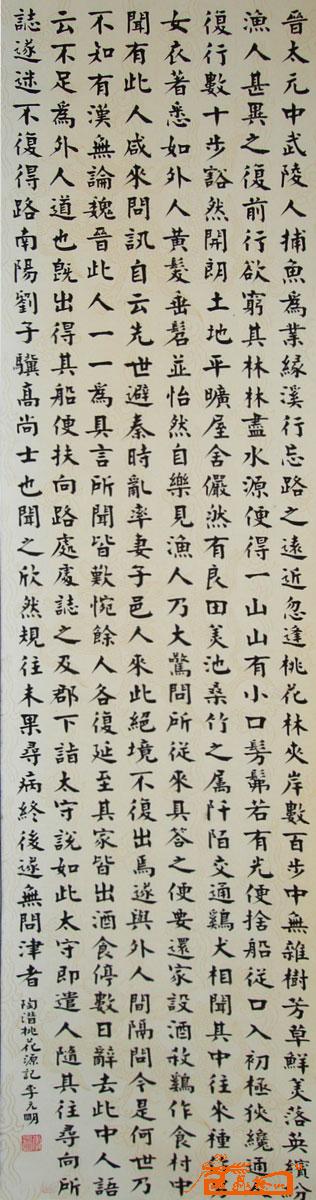 晉太元中武陵人捕魚爲業緣溪行忘路之遠近忽逢桃花林夾岸數百步中無雜樹芳草鮮美落英繽分
漁人甚異之復前行欲窮其林林盡水源便得一山山有小口髣髴若有光便捨船從口入初極狹纔通人
復行數十步豁然開朗土地平曠屋舍儼然有良田美池桑竹之属阡陌交通鷄犬相聞其中往來種
女衣著悉如外人黃髮垂髫並怡然自樂見漁人乃大驚問所從來具答之便要還家設酒殺鷄作食村中
聞有此人咸來問訊自云先世避秦時亂率妻子邑人來此絕境不復出焉遂與外人間隔問今是何世乃
不知有漢無論魏晉此人一一爲具言所聞皆歎惋餘人各復延至其家皆出酒食停數日辭去此中人語
云不足爲外人道也既出得其船便扶向路處處誌之及郡下詣太守說如此太守即遣人隨其往尋向所
誌遂迷不復得路南陽劉子驥高尚士也聞之欣然規往未果尋病終後遂無問津者
陶潛桃花源記李元明